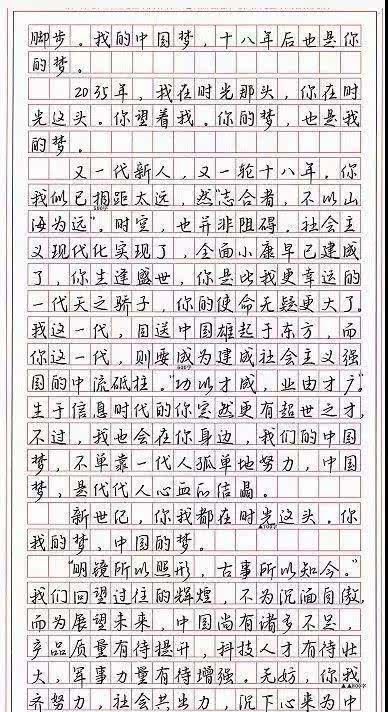 脚步。我的中国梦,十八年后也是你
的梦。
2035年,我在时光那头,你在时
光这头。你望着我。你的梦,也是我
的梦。
又一代新人,又一轮十八年。你
我似已相距太远,然“志合者,不以山
海为远”。时空,也并非阻碍。社会主
义现代化实现了,全面小康早已建成
了,你生逢盛世,你是比我更幸运的
一代天之骄子,你的使命无疑更大了。
我这一代,目送中国雄起于东方,而
你这一代,则要成为建成社会主义强
国的中流砥柱。“功以才成,业由才广。”
生于信息时代的你定然更有超世之才,
不过,我也会在你身边,我们的中国
梦,不单靠一代人孤单地努力,中国
梦,是代代人心血的结晶。
新世纪,你我都在时光这头。你
我的梦,中国的梦。
“明镜所以照形,古事所以知今。”
我们回望过往的辉煌,不为沉湎自傲,
而为展望未来,中国尚有诸多不足,
产品质量有待提升,科技人才有待壮
大,军事力量有待增强。无妨,你我
齐努力,社会共出力,沉下心来为中